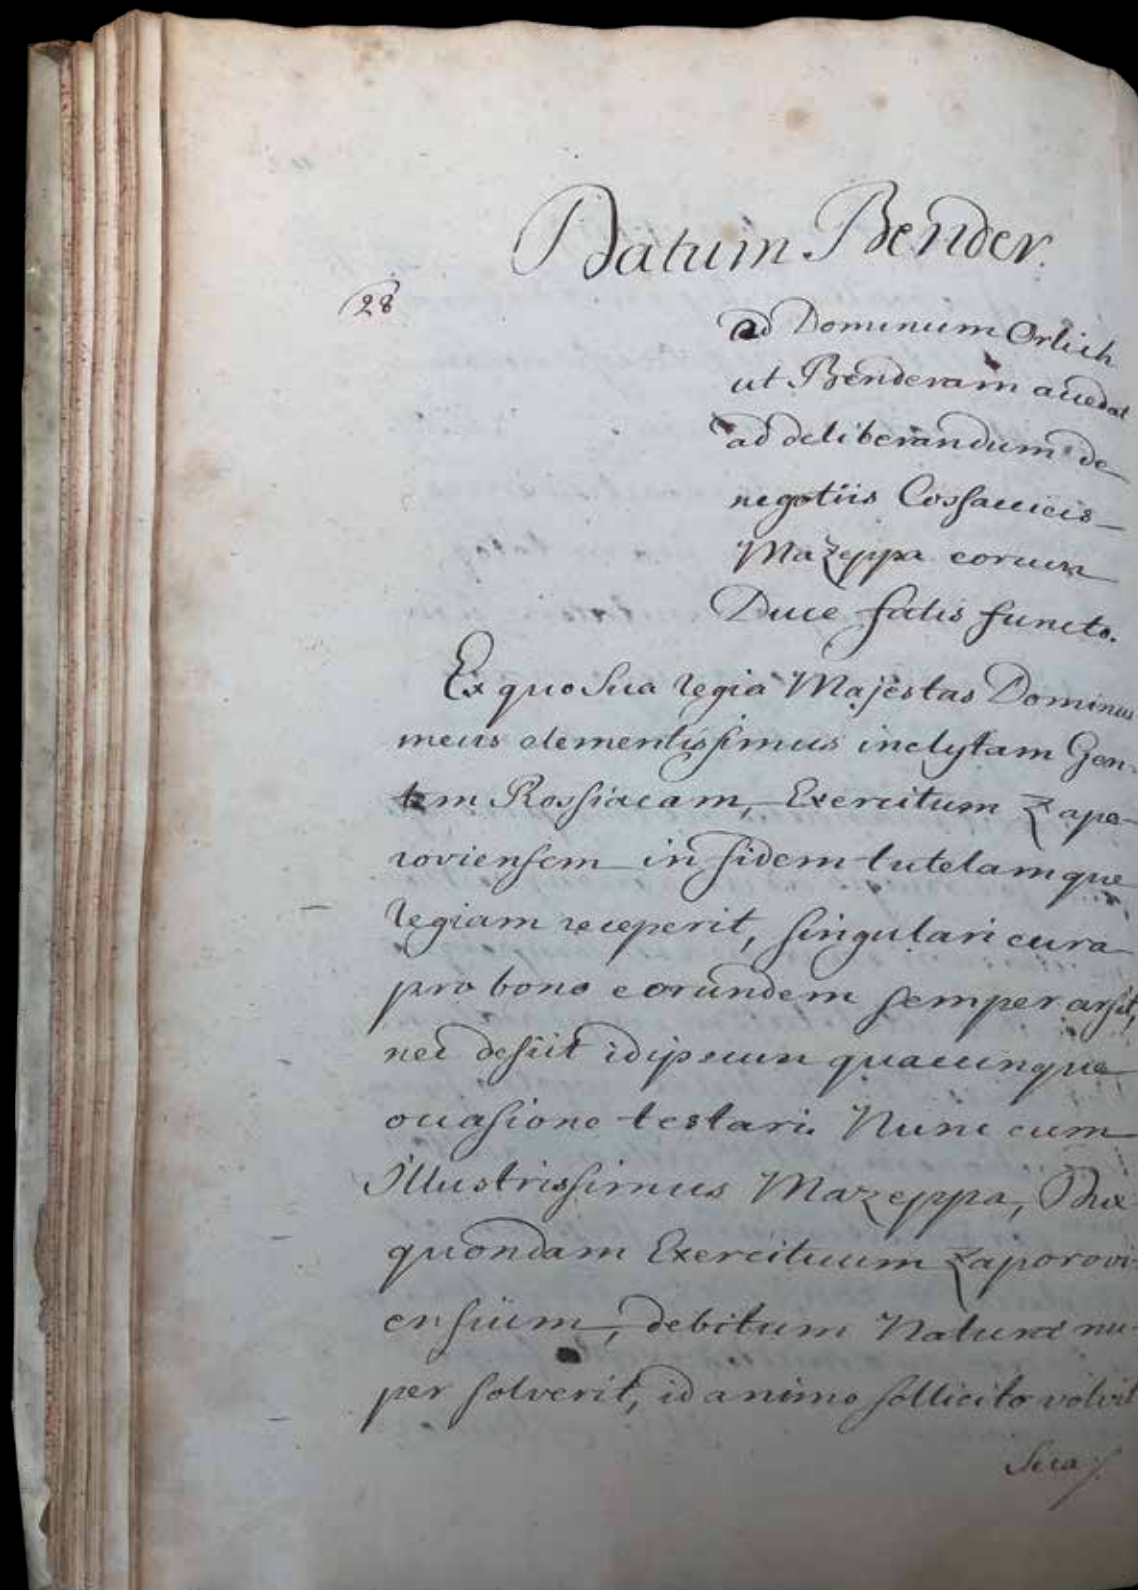 Datum Bender.
28
ad Dominum Orlich
ut Benderam accedat
ad deliberandum de
negotiis Cossaccicis
Mazeppa eorum
Duce fatis functo.
Ex quo Sua regia Majestas Dominus
meus clementissimus inclytam Gen-
tem Rossiacam, Exercitum Zapo-
roviensem in fidem tutelamque
regiam receperit, singulari cura
pro bono eorundem semper arsit,
nec desiit idipsum quacunque
occasione testari. Nunc cum
Illustrissimus Mazeppa, Dux
quondam Exercituum Zaporovi-
ensium, debitum Naturæ nu-
per solverit, id animo sollicito volvit
Sua